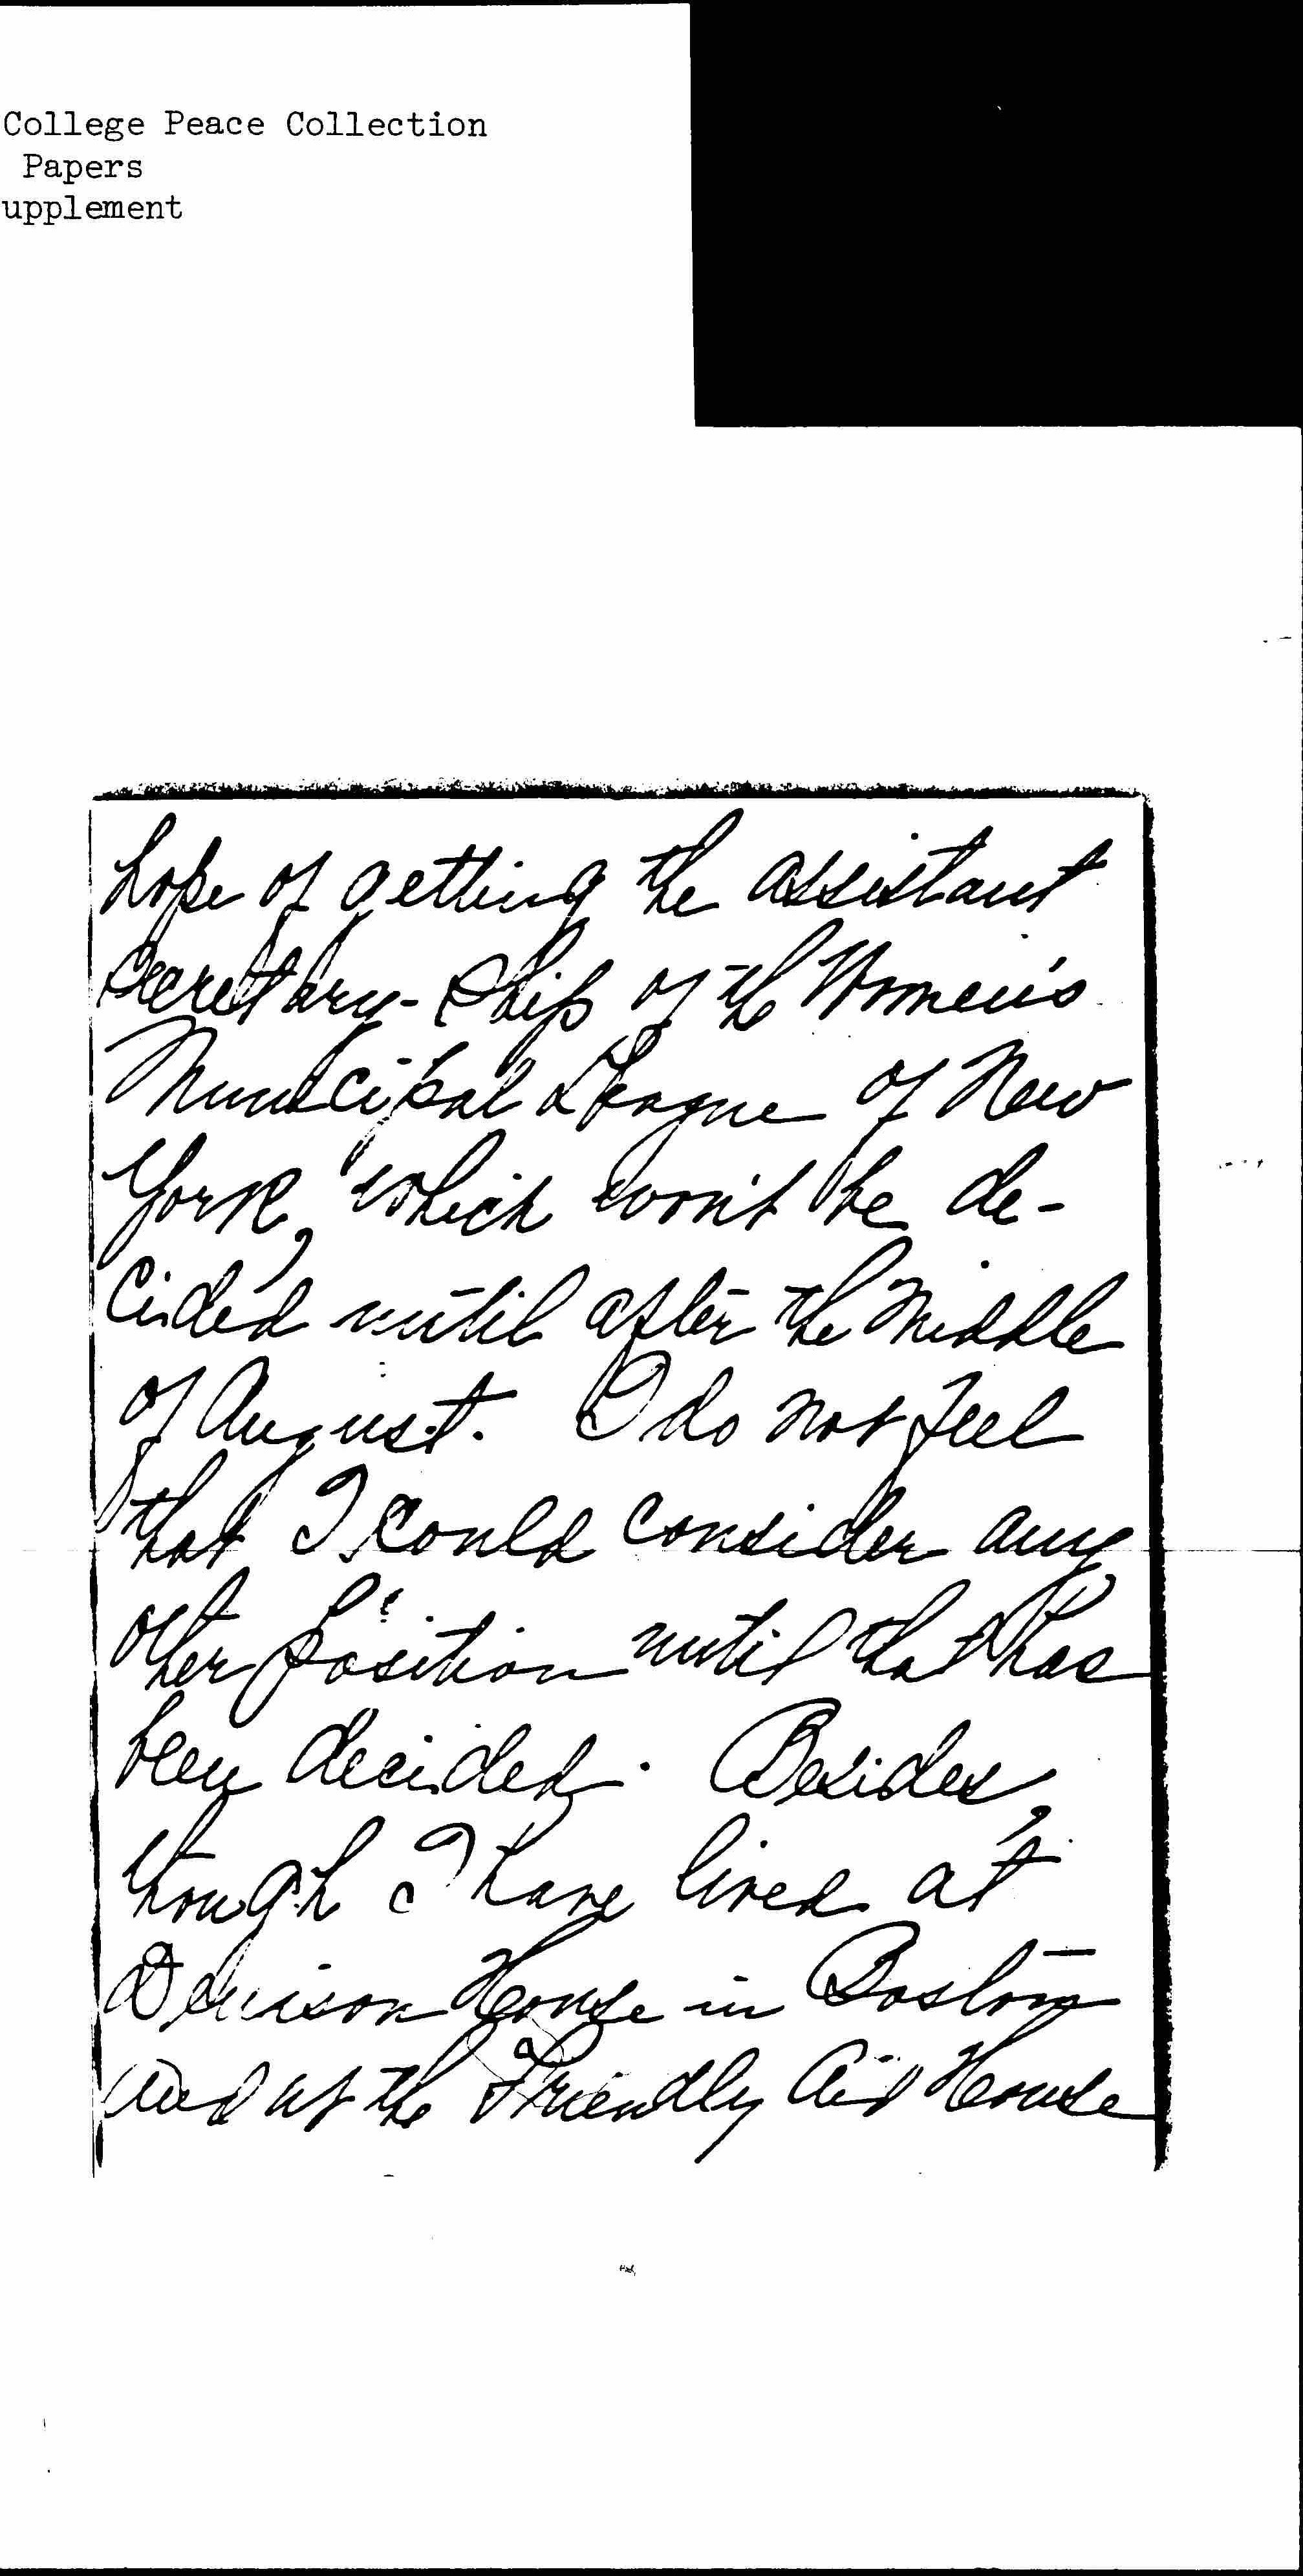 College Peace Collection
Papers
upplement
hope of getting the assistant
secretary-ship of the Women's
Municipal League of New
York, which won't be de-
cided until after the middle
of August. I do not feel
that I could consider any
other position until that has
been decided. Besides,
though I have lived at
Denison House in Boston
and at the Friendly Aid House